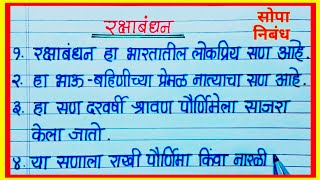 रक्षाबंधन
सोपा
निबंध
१. रक्षाबंधन हा भारतातील लोकप्रिय सण आहे.
२. हा भाऊ-बहिणीच्या प्रेमळ नात्याचा सण आहे.
३. हा सण दरवर्षी श्रावण पौर्णिमेला साजरा
केला जातो.
४. या सणाला राखी पौर्णिमा किंवा नारळी